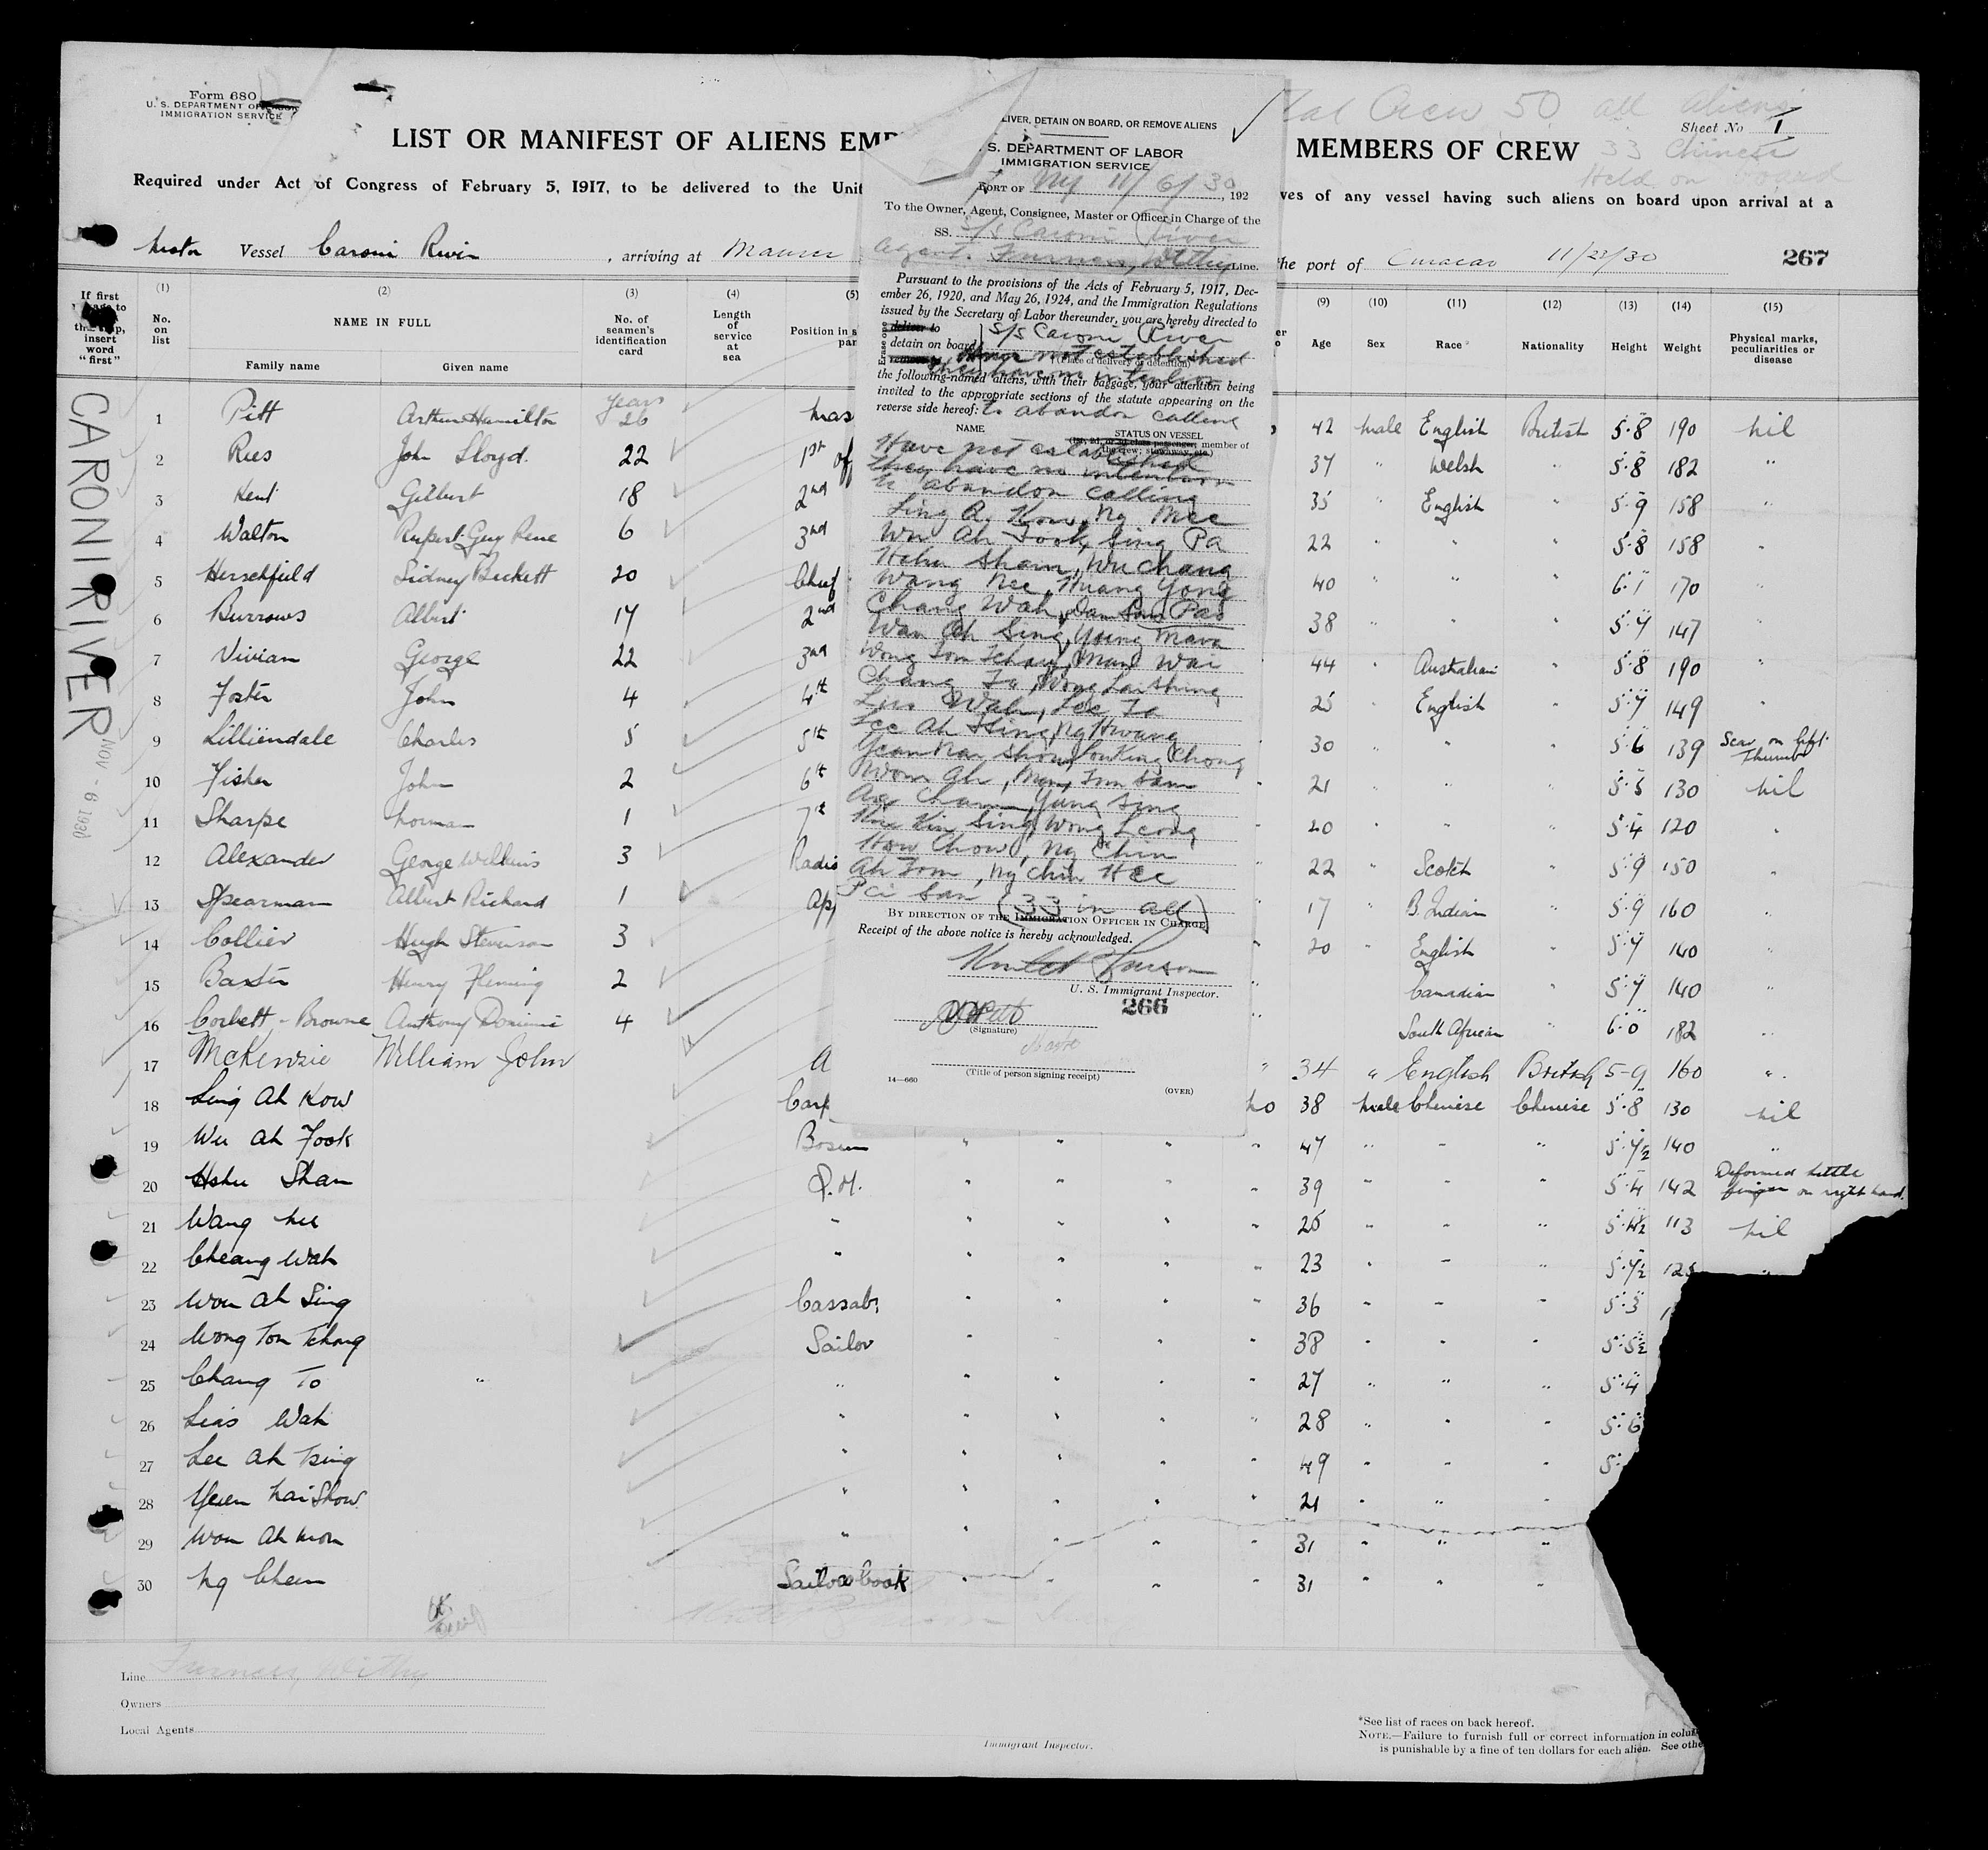 Form 680
U. S. DEPARTMENT OF
IMMIGRATION SERVICE
Crew 50 all aliens
33 Chinese
Held on board
Sheet No 1
LIST OR MANIFEST OF ALIENS EMP
MEMBERS OF CREW
Required under Act of Congress of February 5, 1917, to be delivered to the Unit
ves of any vessel having such aliens on board upon arrival at a
Vessel Caroni River , arriving at Maurer
the port of Curacao 11/22/30 267
If first
insert
word
"first"
(1) No. on list
(2) NAME IN FULL
Family name Given name
(3) No. of seamen's identification card
(4) Length of service at sea
(5) Position in s
(9) Age
(10) Sex
(11) Race*
(12) Nationality
(13) Height
(14) Weight
(15) Physical marks, peculiarities or disease
CARONI RIVER
NOV - 6 1930
LIVER, DETAIN ON BOARD, OR REMOVE ALIENS
S. DEPARTMENT OF LABOR
IMMIGRATION SERVICE
PORT OF NY 11/6/30, 192
To the Owner, Agent, Consignee, Master or Officer in Charge of the
SS. S/S Caroni River
Agent. Furness, Withy Line.
Pursuant to the provisions of the Acts of February 5, 1917, Dec-
ember 26, 1920, and May 26, 1924, and the Immigration Regulations
issued by the Secretary of Labor thereunder, you are hereby directed to
Erase one
deliver to
detain on board S/S Caroni River
remove
(Place of delivery or detention)
not established
they have no intention
the following-named aliens, with their baggage, your attention being
invited to the appropriate sections of the statute appearing on the
reverse side hereof: to abandon calling
NAME STATUS ON VESSEL
member of
Have not established
they have no intention
to abandon calling
Ling A. Kow, Ng Mee
Wu Ah Fook, Sing Pa
Hshu Sham, Wu Chang
Wang Nee, Huang Yong
Chang Wah, Dan San Pao
Wan Ah Sing, Young Mava
Wong Tom Tchay, Man Wai
Chang To, Wong Lai Shing
Lias Wah, Lee To
Lee Ah Tsing, Ng Hwang
Yeun Nai Show, Pou King Chong
Wom Ah, Mon, Fun Sam
Chan, Yung Sing
Kin Sing, Wong Leong
How Chow, Ng Chin
Ah Tom, Ng Chin Hee
Pci San (33 in all)
BY DIRECTION OF THE IMMIGRATION OFFICER IN CHARGE
Receipt of the above notice is hereby acknowledged.
U. S. Immigrant Inspector.
266
(Signature)
(Title of person signing receipt)
14—660
(OVER)
1 Pitt Arthur Hamilton years 26 mas 42 male English British 5·8 190 nil
2 Rees John Lloyd 22 1st of 37 " Welsh " 5·8 182 "
3 Kent Gilbert 18 2nd 35 " English " 5·9 158 "
4 Walton Rupert Guy Rene 6 3rd 22 " " " 5·8 158 "
5 Herschfield Sidney Beckett 20 Chief 40 " " " 6·1 170 "
6 Burrows Albert 17 2nd 38 " " " 5·7 147 "
7 Vivian George 22 3rd 44 " Australian " 5·8 190 "
8 Foster John 4 4th 25 " English " 5·7 149 "
9 Lilliendale Charles 5 5th 30 " " " 5·6 139 Scar on left Thumb
10 Fisher John 2 6th 21 " " " 5·5 130 nil
11 Sharpe Norman 1 7th 20 " " " 5·4 120 "
12 Alexander George Wilkins 3 Radio 22 " Scotch " 5·9 150 "
13 Spearman Albert Richard 1 Ap 17 " B. Indian " 5·9 160 "
14 Collier Hugh Stevenson 3 20 " English " 5·7 140 "
15 Baxter Henry Fleming 2 Canadian " 5·7 140 "
16 Corbett-Browne Anthony Dominic 4 South African " 6·0 182 "
17 McKenzie William John A 34 " English British 5-9 160 "
18 Ling Ah Kow Carp no 38 male Chinese Chinese 5·8 130 nil
19 Wu Ah Fook Bosun " " " " 47 " " " 5·7½ 140 "
20 Hshu Shan Q.M. " " " " 39 " " " 5·4 142 Deformed little finger on right hand.
21 Wang Nee " " " " " 25 " " " 5·4½ 113 nil
22 Cheang Wah " " " " " 23 " " " 5·7½ 125 "
23 Won Ah Sing Cassab " " " " 36 " " " 5·3
24 Wong Tom Tchang Sailor " " " " 38 " " " 5·5½
25 Chang To " " " " " " 27 " " " 5·4
26 Lias Wah " " " " " 28 " " " 5·6
27 Lee Ah Tsing " " " " " 49 " " " 5·
28 Yeun Nai Show " " " " " 21 " " "
29 Wom Ah Mon " " " " " 31 " " "
30 Ng Cheen Sailors Cook " " " " 31 " " "
Line Furness, Withy
Owners
Local Agents
Immigrant Inspector.
*See list of races on back hereof.
NOTE.—Failure to furnish full or correct information in colu
is punishable by a fine of ten dollars for each alien. See othe